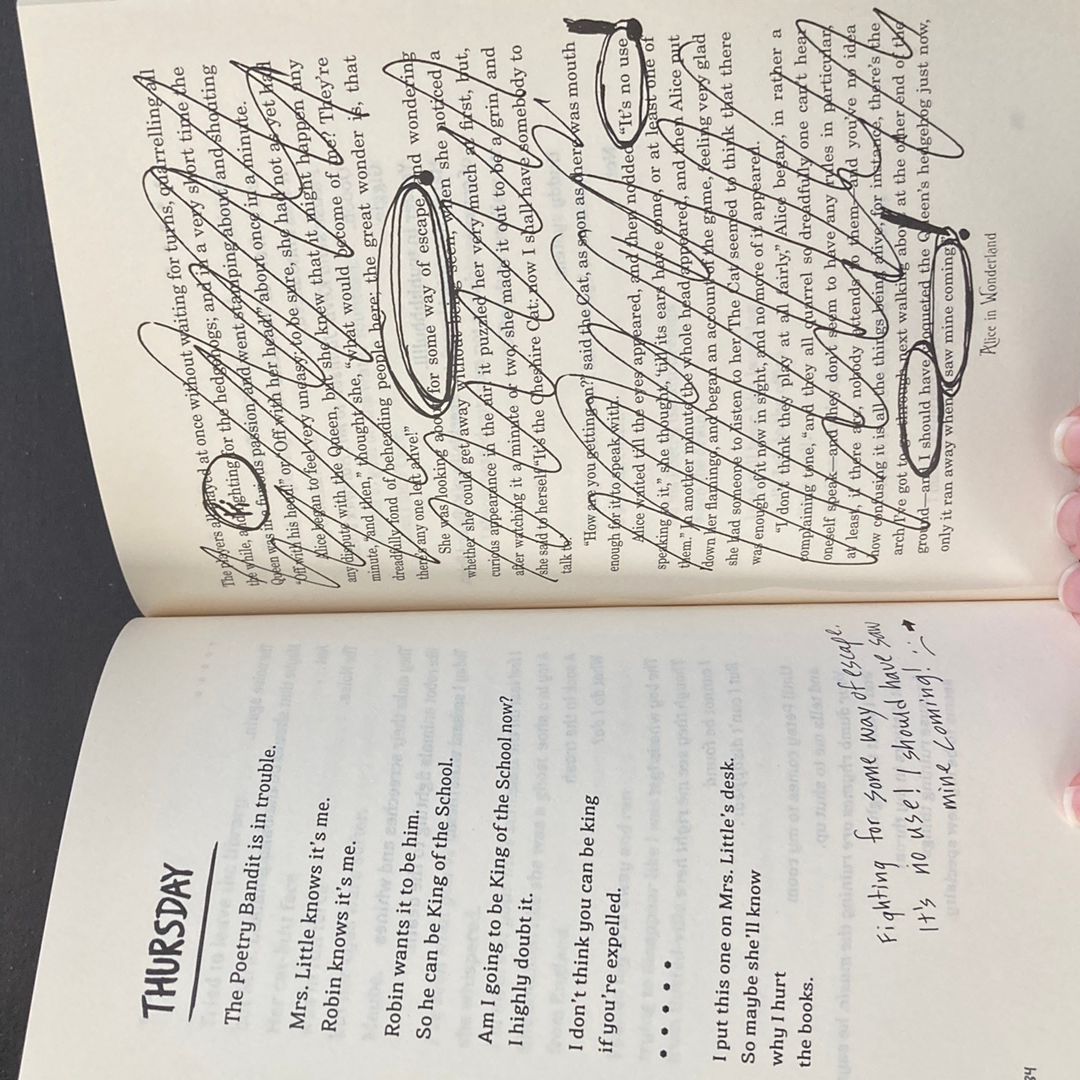 THURSDAY
The Poetry Bandit is in trouble.
Mrs. Little knows it's me.
Robin knows it's me.
Robin wants it to be him.
So he can be King of the School.
Am I going to be King of the School now?
I highly doubt it.
I don't think you can be king
if you're expelled.
• • • • • •
I put this one on Mrs. Little's desk.
So maybe she'll know
why I hurt
the books.
Fighting for some way of escape.
It's no use! I should have saw
mine coming!
34
The players all played at once without waiting for turns, quarrelling all
the while, and fighting for the hedgehogs; and in a very short time the
Queen was in a furious passion, and went stamping about and shouting
"Off with his head!" or "Off with her head!" about once in a minute.
Alice began to feel very uneasy: to be sure, she had not as yet had
any dispute with the Queen, but she knew that it might happen any
minute, "and then," thought she, "what would become of me? They're
dreadfully fond of beheading people here: the great wonder is, that
there's any one left alive!"
She was looking about for some way of escape, and wondering
whether she could get away without being seen, when she noticed a
curious appearance in the air: it puzzled her very much at first, but,
after watching it a minute or two, she made it out to be a grin, and
she said to herself "It's the Cheshire Cat: now I shall have somebody to
talk to."
"How are you getting on?" said the Cat, as soon as there was mouth
enough for it to speak with.
Alice waited till the eyes appeared, and then nodded. "It's no use
speaking to it," she thought, "till its ears have come, or at least one of
them." In another minute the whole head appeared, and then Alice put
down her flamingo, and began an account of the game, feeling very glad
she had someone to listen to her. The Cat seemed to think that there
was enough of it now in sight, and no more of it appeared.
"I don't think they play at all fairly," Alice began, in rather a
complaining tone, "and they all quarrel so dreadfully one can't hear
oneself speak—and they don't seem to have any rules in particular;
at least, if there are, nobody attends to them—and you've no idea
how confusing it is all the things being alive; for instance, there's the
arch I've got to go through next walking about at the other end of the
ground—and I should have croqueted the Queen's hedgehog just now,
only it ran away when it saw mine coming!"
Alice in Wonderland